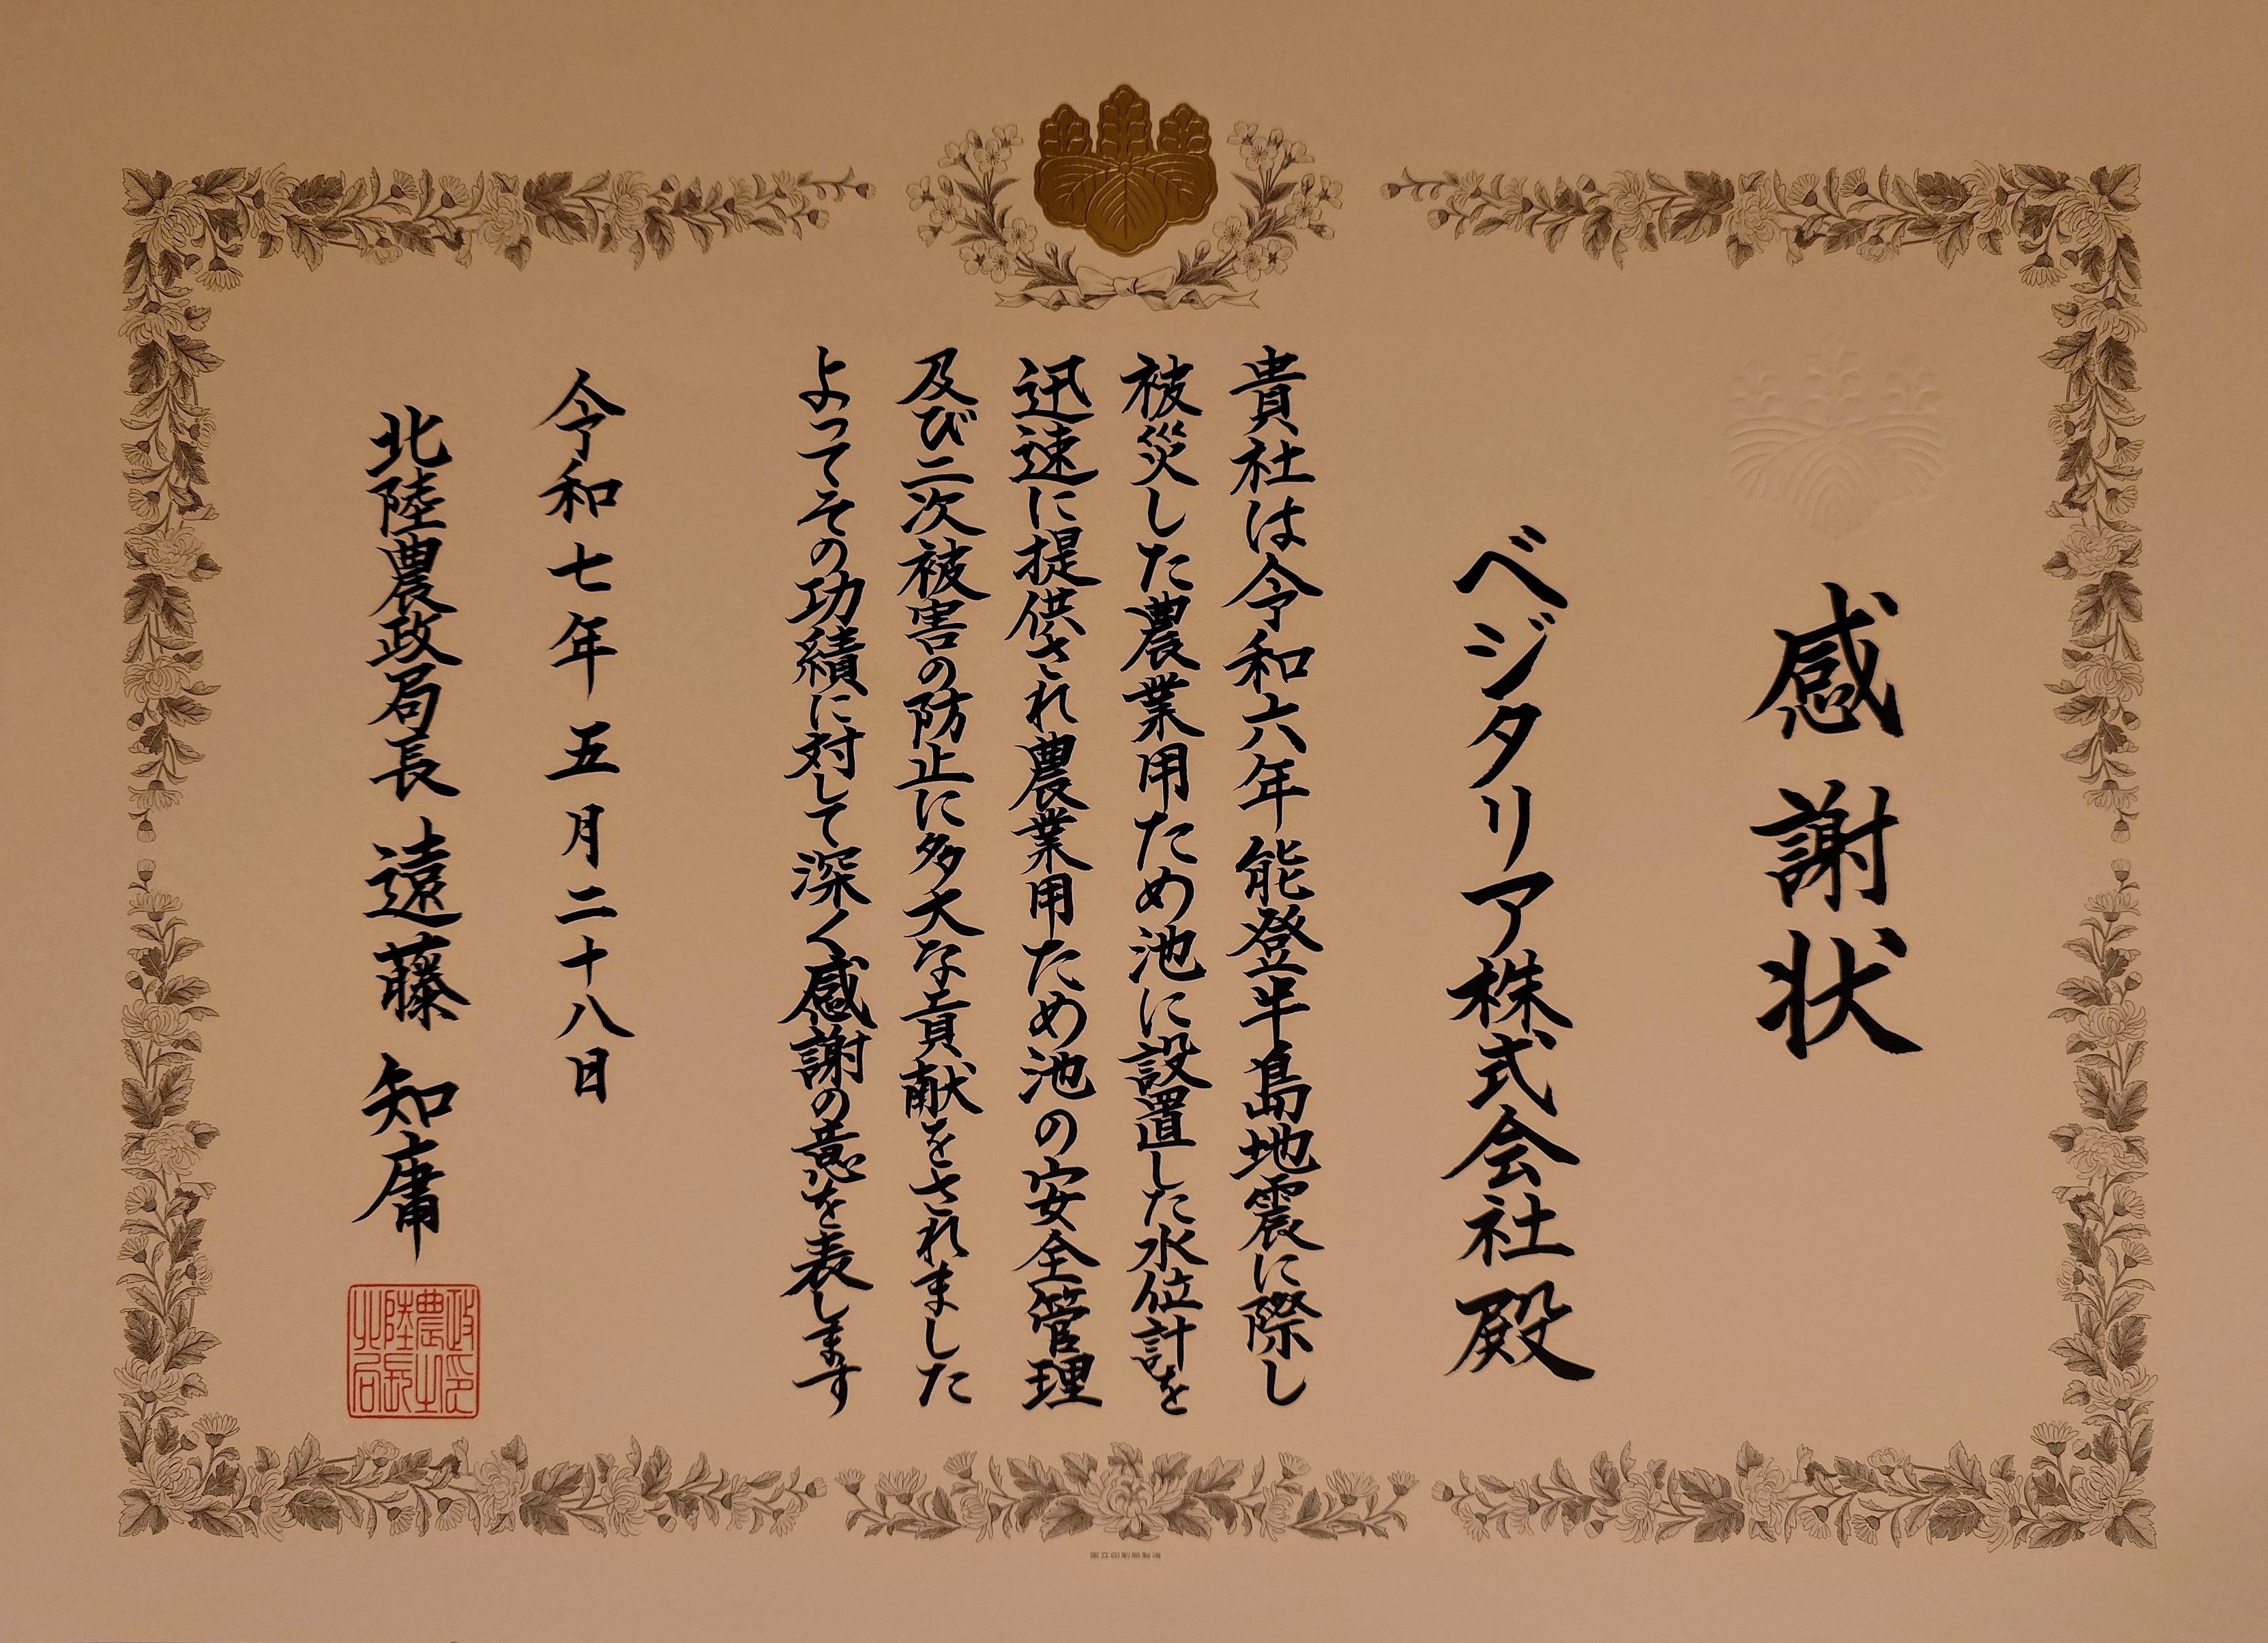 感謝状
ベジタリア株式会社 殿
貴社は令和六年能登半島地震に際し
被災した農業用ため池に設置した水位計を
迅速に提供され農業用ため池の安全管理
及び二次被害の防止に多大な貢献をされました
よってその功績に対して深く感謝の意を表します
令和七年五月二十八日
北陸農政局長 遠藤 知庸
北陸農政局長之印